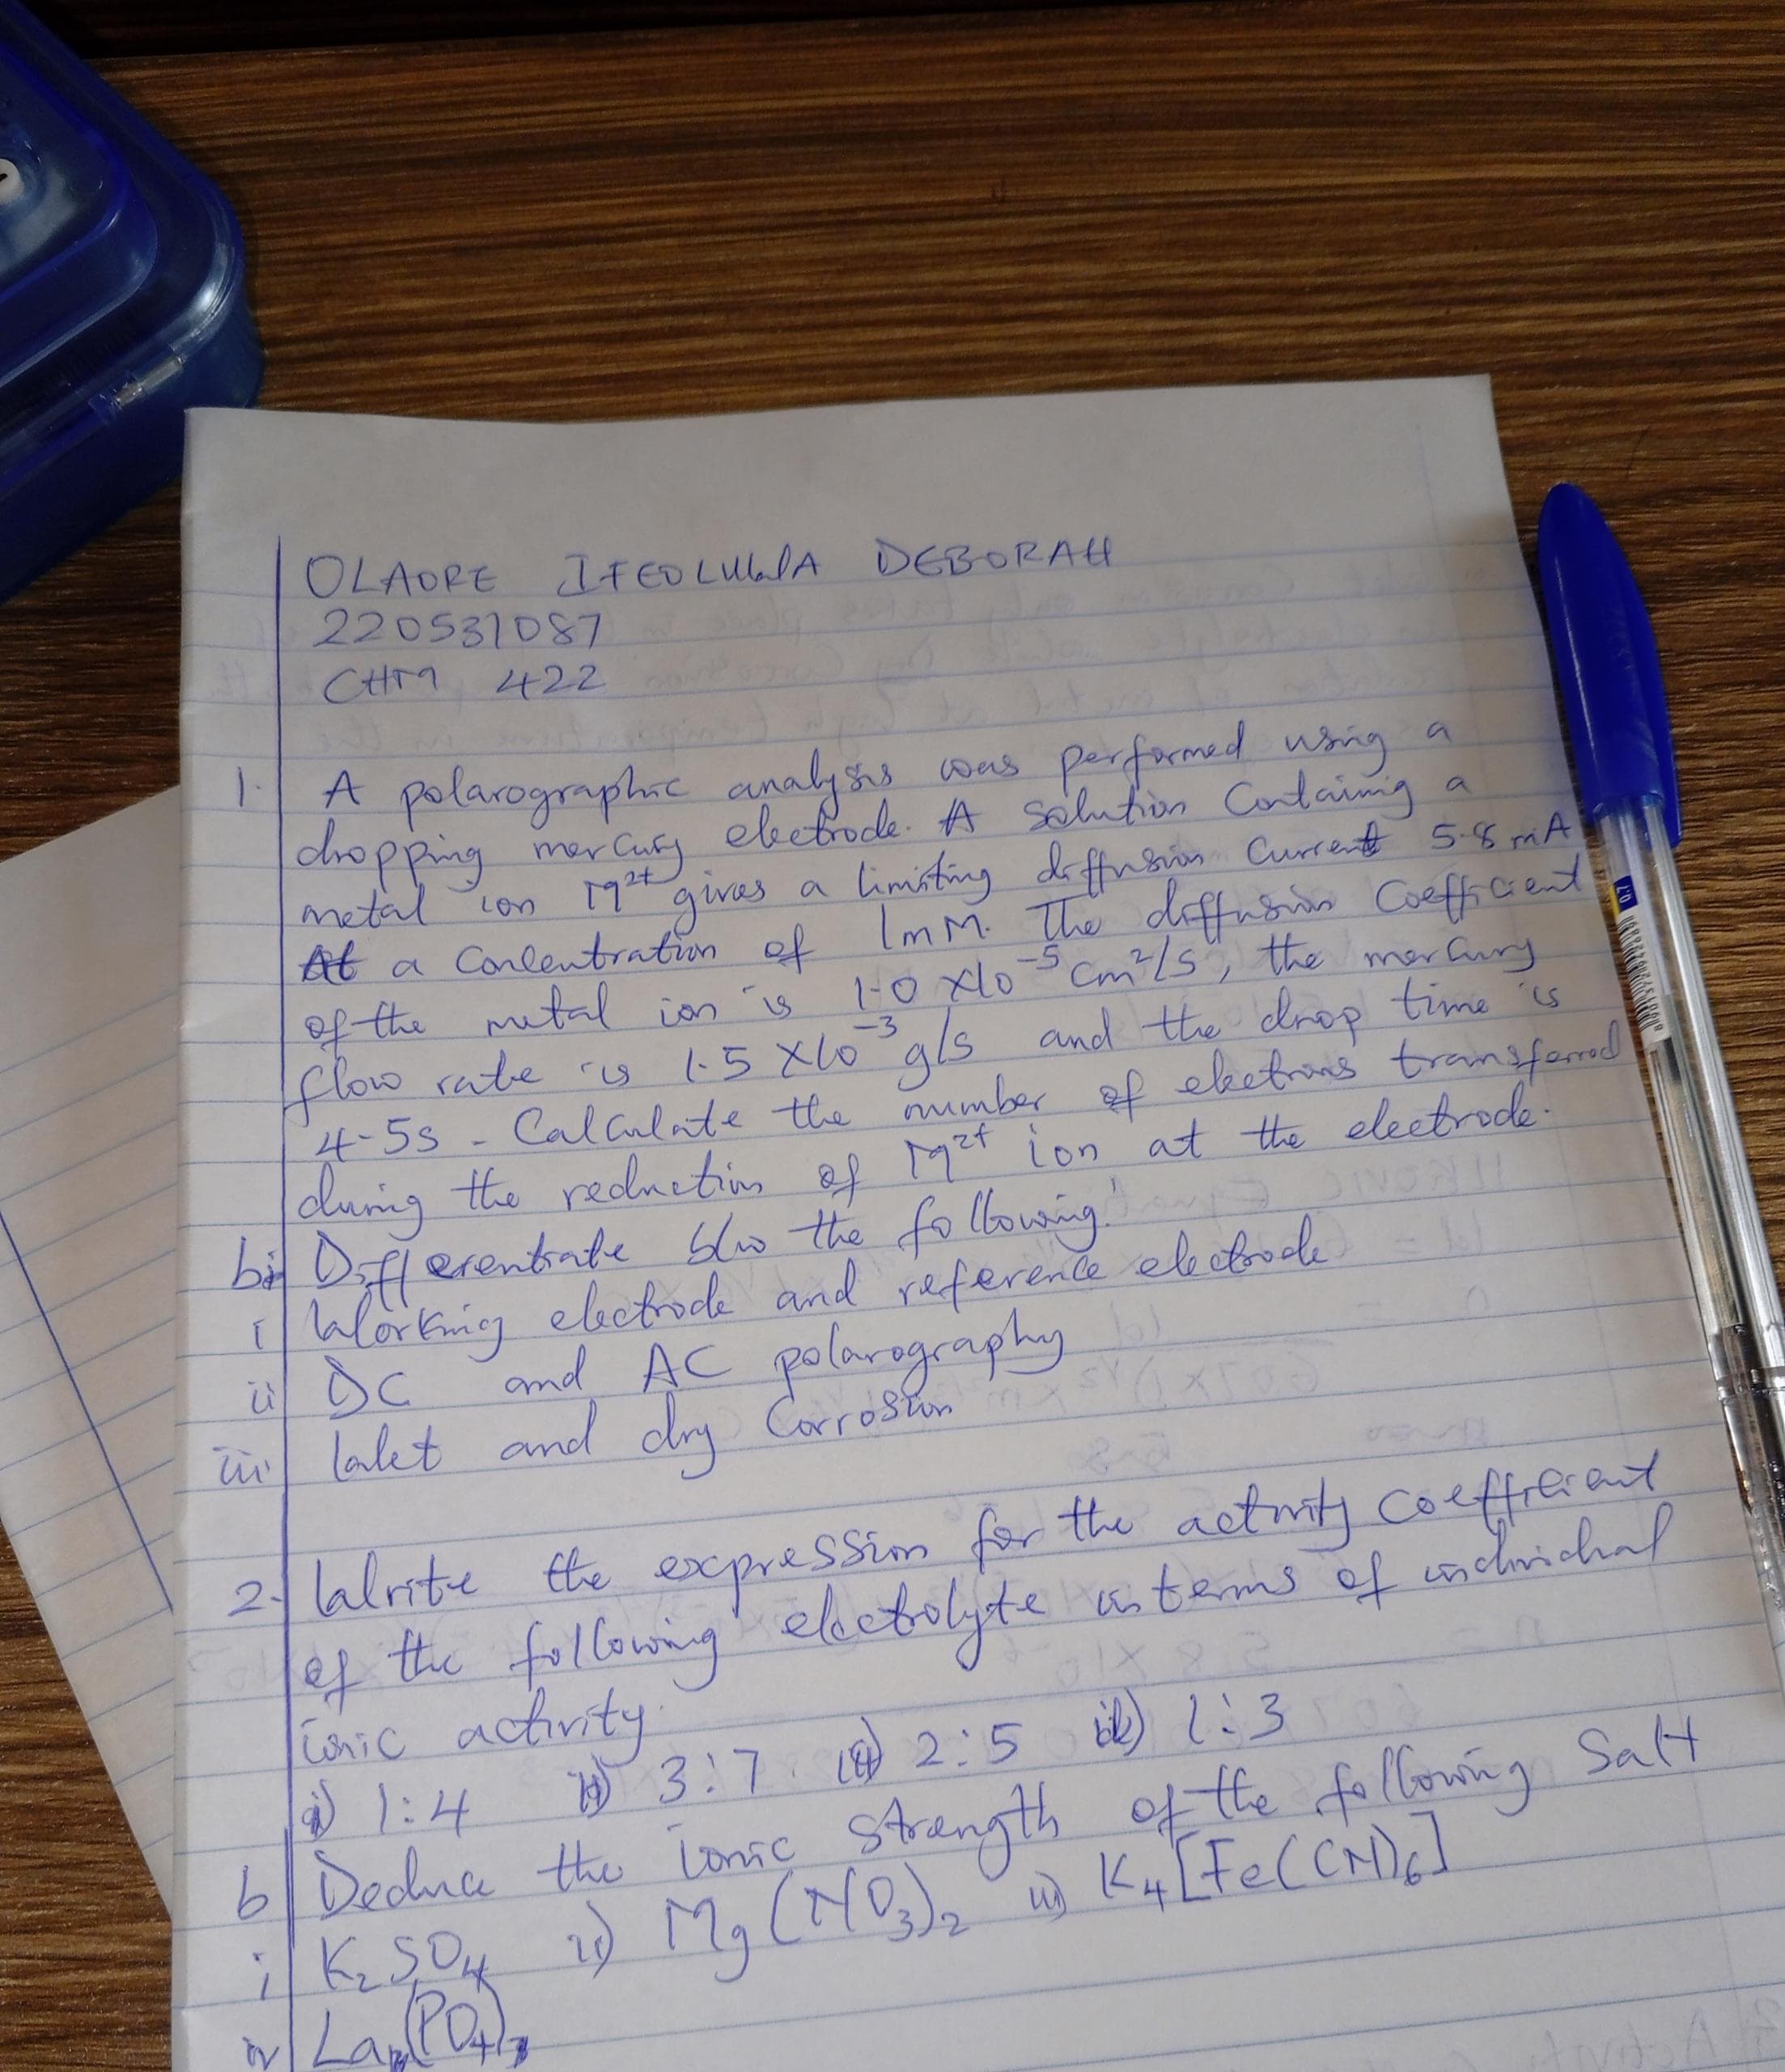 OLAORE IFEOLUWA DEBORAH
220531087
CHM 422
1. A polarographic analysis was performed using a
dropping mercury electrode. A solution Containing a
metal ion M²⁺ gives a limiting diffusion Current 5.8 mA
At a Concentration of 1mM. The diffusion Coefficient
of the metal ion is 1.0 x10⁻⁵ cm²/s, the mercury
flow rate is 1.5 x10⁻³ g/s and the drop time is
4.5s. Calculate the number of electrons transferred
during the reduction of M²⁺ ion at the electrode.
bi Differentiate b/w the following!
i Working electrode and reference electrode
ii DC and AC polarography
iii Wet and dry Corrosion
2. Write the expression for the activity coefficient
of the following electrolyte in terms of individual
ionic activity.
i) 1:4 ii) 3:7 iii) 2:5 1:3
b Deduce the ionic strength of the following Salt
i K₂SO₄ ii) Mg(NO₃)₂ iii) K₄[Fe(CN)₆]
iv La(PO₄)